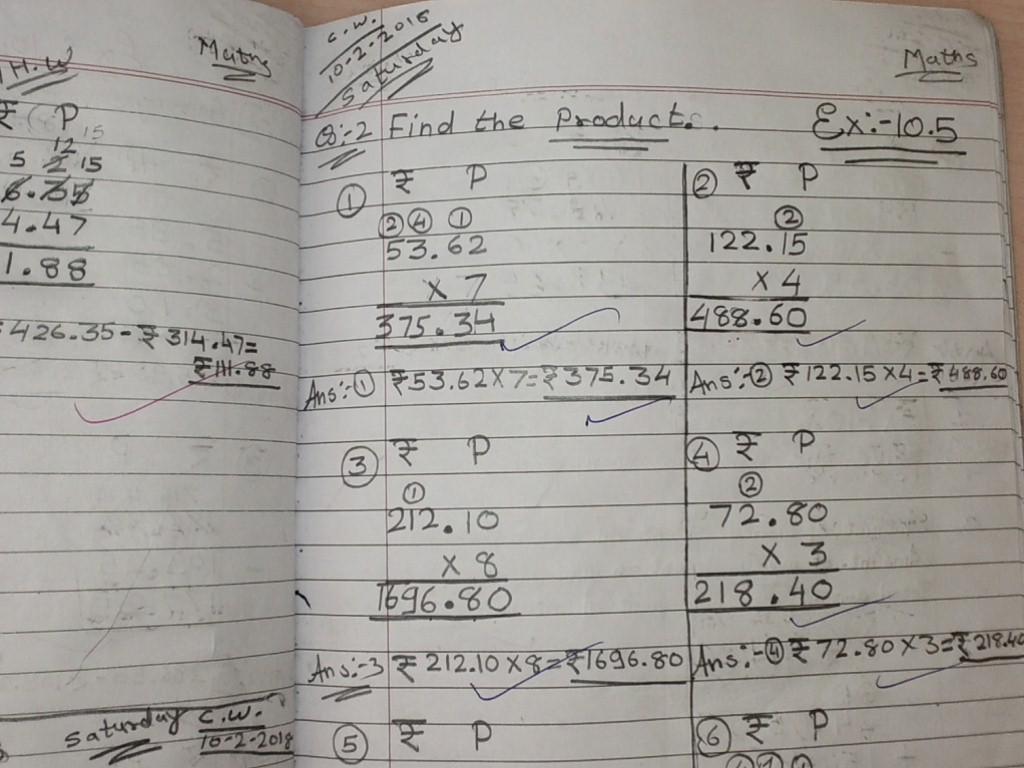 H.W Maths
₹ P
12 15
5 2 15
6.35
4.47
1.88
426.35 - ₹ 314.47=
₹111.88
Saturday C.W.
10-2-2018
C.W.
10-2-2018
Saturday
Maths
Q:-2 Find the Product. Ex:-10.5
① ₹ P
② ④ ①
53.62
x 7
375.34
Ans:-① ₹53.62x7=₹375.34
② ₹ P
②
122.15
x 4
488.60
Ans:-② ₹122.15x4=₹488.60
③ ₹ P
①
212.10
x 8
1696.80
Ans:-3 ₹212.10x8=₹1696.80
④ ₹ P
②
72.80
x 3
218.40
Ans:-④ ₹72.80x3=₹218.40
⑤ ₹ P
⑥ ₹ P